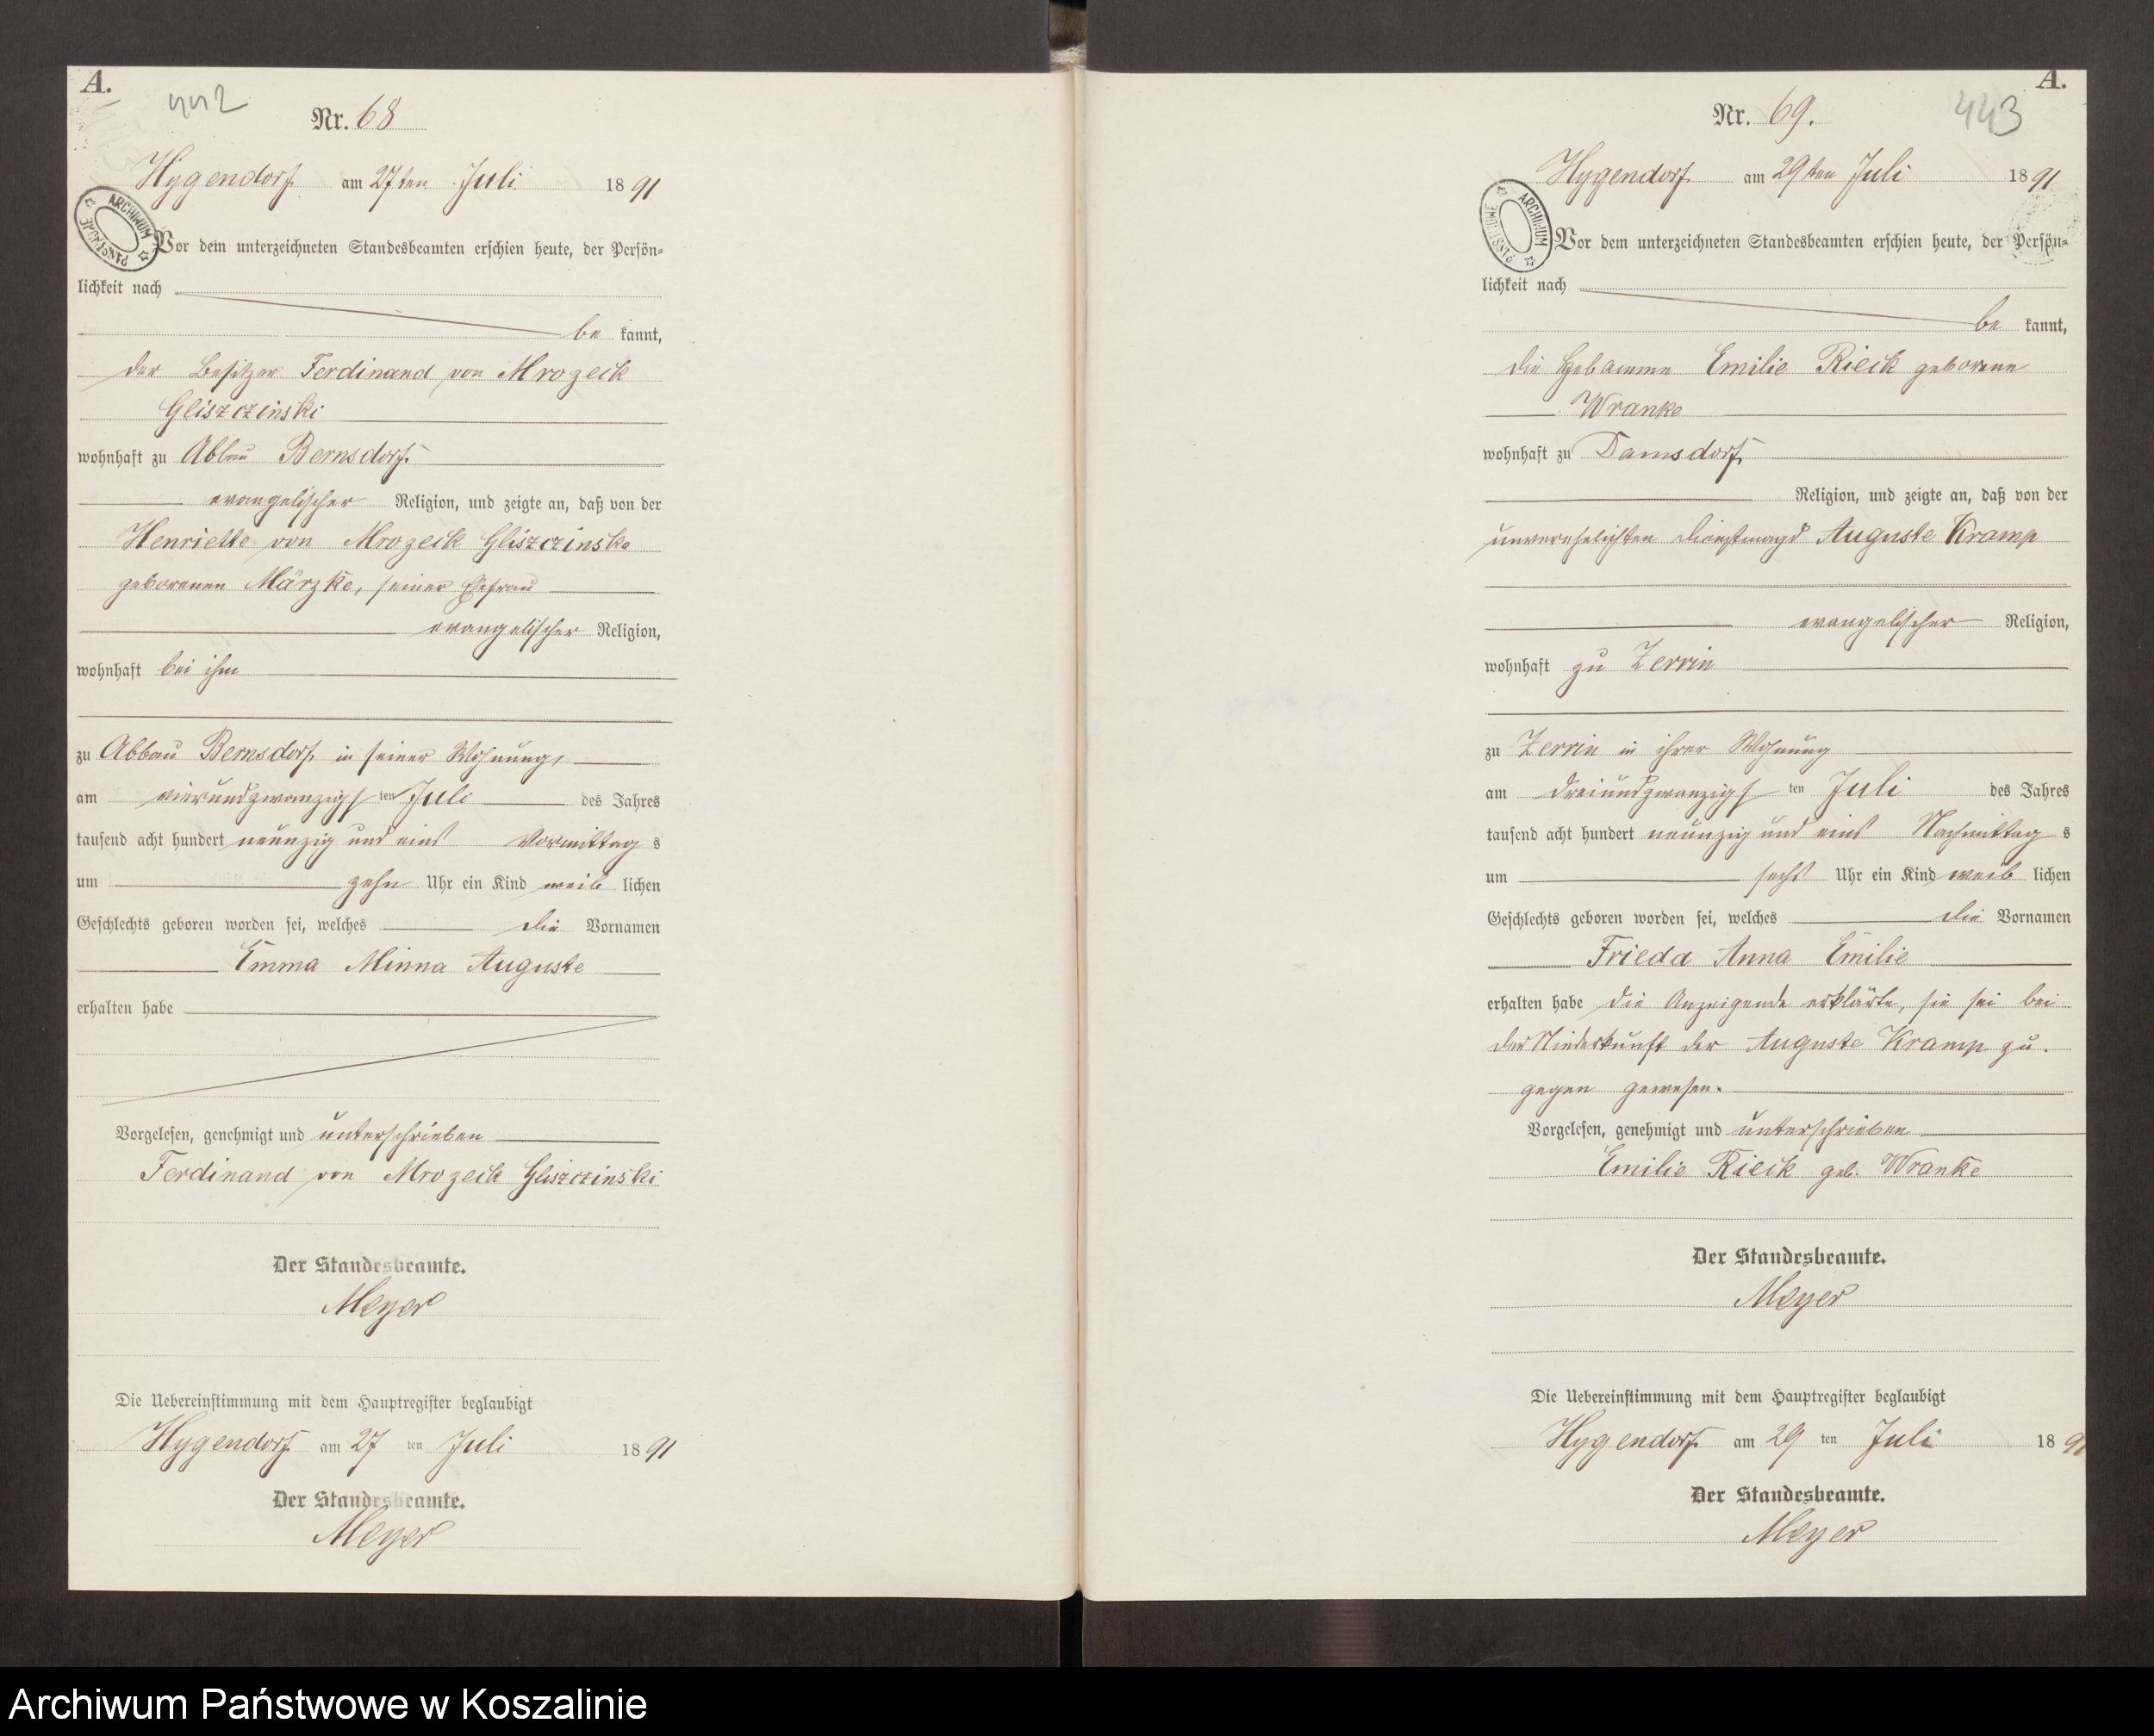 A.
442
Nr. 68
Hygendorf am 27ten Juli 1891
ARCHIWUM PAŃSTWOWE
Vor dem unterzeichneten Standesbeamten erschien heute, der Persön-
lichkeit nach
be kannt,
der Besitzer Ferdinand von Mrozeck
Gliszczinski
wohnhaft zu Abbau Bernsdorf
evangelischer Religion, und zeigte an, daß von der
Henriette von Mrozeck Gliszczinska
geborenen Märzke, seiner Ehefrau
evangelischer Religion,
wohnhaft bei ihm
zu Abbau Bernsdorf in seiner Wohnung,
am vierundzwanzigsten Juli des Jahres
tausend acht hundert neunzig und eins Vormittags
um zehn Uhr ein Kind weiblichen
Geschlechts geboren worden sei, welches die Vornamen
Emma Minna Auguste
erhalten habe
Vorgelesen, genehmigt und unterschrieben
Ferdinand von Mrozeck Gliszczinski
Der Standesbeamte.
Meyer
Die Uebereinstimmung mit dem Hauptregister beglaubigt
Hygendorf am 27 ten Juli 1891
Der Standesbeamte.
Meyer
A.
443
Nr. 69.
Hygendorf am 29ten Juli 1891
ARCHIWUM PAŃSTWOWE
Vor dem unterzeichneten Standesbeamten erschien heute, der Persön-
lichkeit nach
be kannt,
die Hebamme Emilie Rieck geborene
Wranke
wohnhaft zu Damsdorf
Religion, und zeigte an, daß von der
unverehelichten Dienstmagd Auguste Kramp
evangelischer Religion,
wohnhaft zu Zerrin
zu Zerrin in ihrer Wohnung
am dreiundzwanzigsten Juli des Jahres
tausend acht hundert neunzig und eins Nachmittags
um sechs Uhr ein Kind weiblichen
Geschlechts geboren worden sei, welches die Vornamen
Frieda Anna Emilie
erhalten habe die Anzeigende erklärte, sie sei bei
der Niederkunft der Auguste Kramp zu-
gegen gewesen.
Vorgelesen, genehmigt und unterschrieben
Emilie Rieck geb. Wranke
Der Standesbeamte.
Meyer
Die Uebereinstimmung mit dem Hauptregister beglaubigt
Hygendorf am 29 ten Juli 1891
Der Standesbeamte.
Meyer
Archiwum Państwowe w Koszalinie